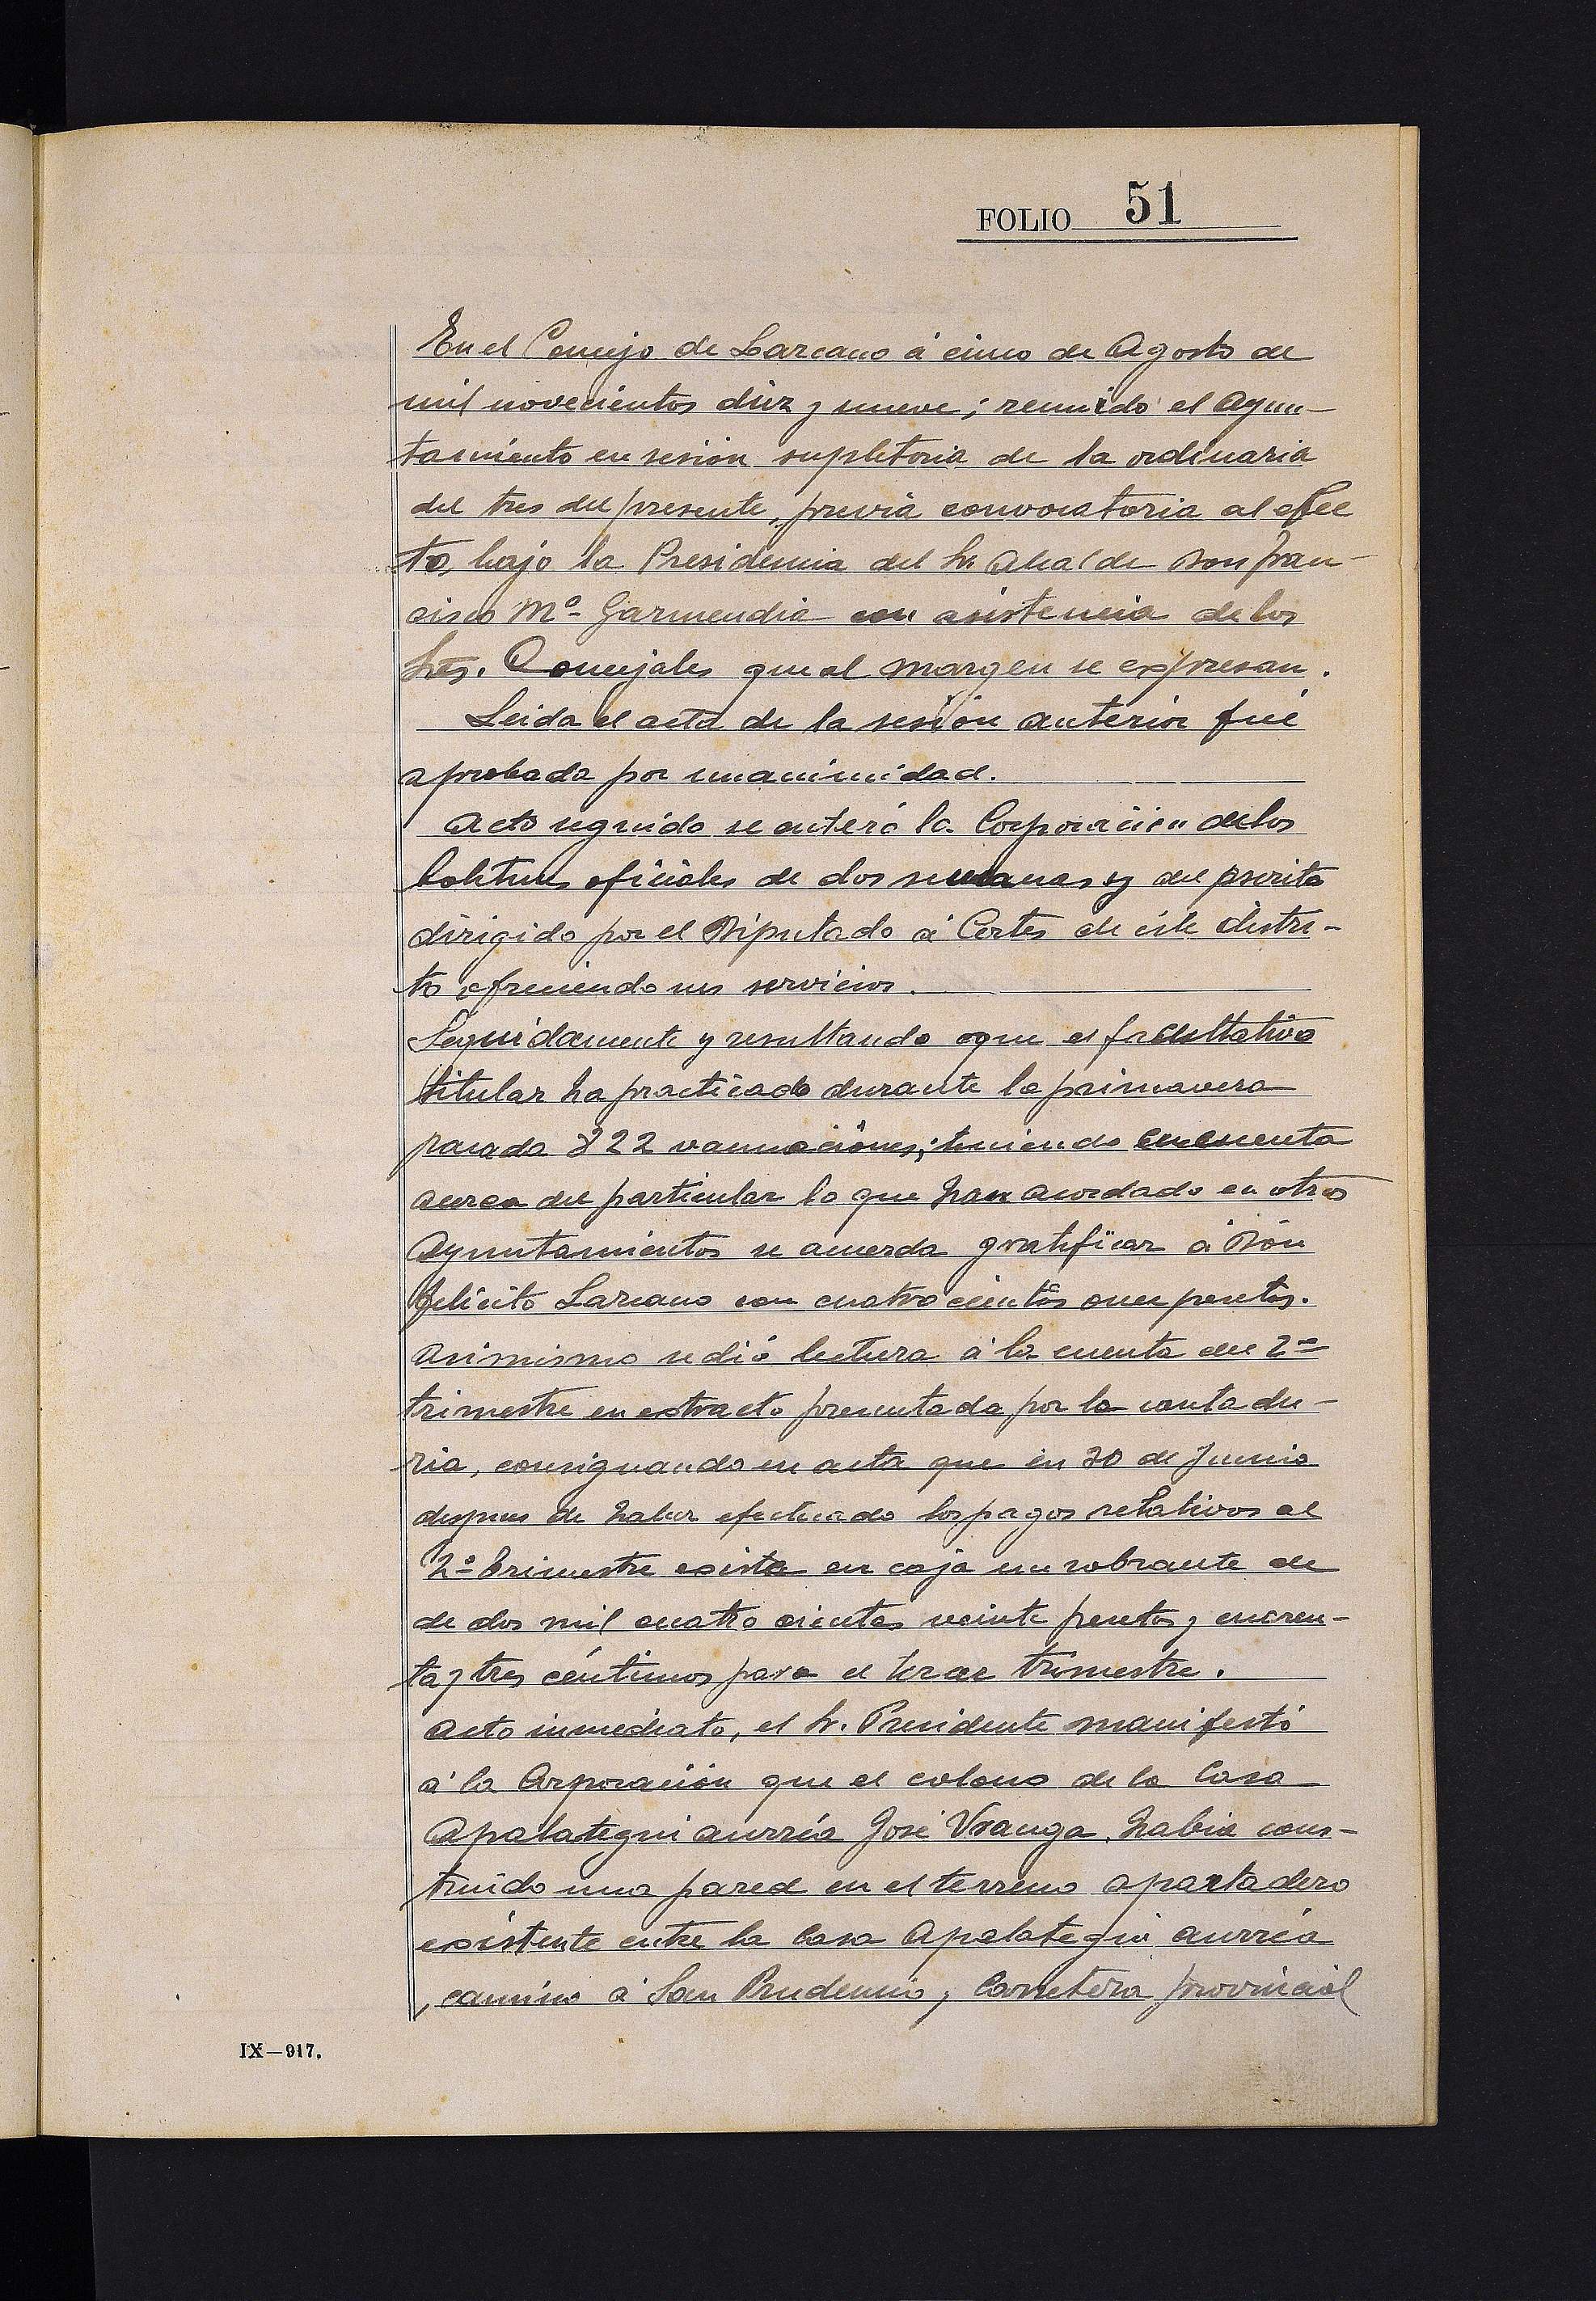 FOLIO 51
En el Concejo de Lazcano á cinco de Agosto de
mil novecientos diez y nueve; reunido el Ayun-
tamiento en sesión supletoria de la ordinaria
del tres del presente, previa convocatoria al efec
to, bajo la Presidencia del Sr. Alcalde Don Fran-
cisco Mª Garmendia con asistencia de los
Sres. Concejales que al margen se expresan.
Leida el acta de la sesión anterior fué
aprobada por unanimidad.
Acto seguido se enteró la Corporación de los
boletines oficiales de dos semanas y del escrito
dirigido por el Diputado á Cortes de éste distri-
to ofreciendo sus servicios.
Seguidamente y resultando que el facultativo
titular ha practicado durante la primavera
pasada 822 vacunaciones; teniendo en cuenta
acerca del particular lo que han acordado en otros
Ayuntamientos se acuerda gratificar á Don
Felicito Lazcano con cuatrocientas once pesetas.
Asimismo se dió lectura á la cuenta del 2º
trimestre en extracto presentada por la contadu-
ria, consignando en acta que en 30 de Junio
despues de haber efectuado los pagos relativos al
2º trimestre exista en caja un sobrante de
de dos mil cuatro cientas veinte pesetas y cincuen-
ta y tres céntimos para el tercer trimestre.
Acto inmediato, el Sr. Presidente manifestó
á la Corporación que el colono de la Casa
Apalategui aurréa José Uranga, habia cons-
truido una pared en el terreno apartadero
existente entre la Casa Apalategui aurréa
, camino á San Prudencio, y Carretera provincial
IX—917.